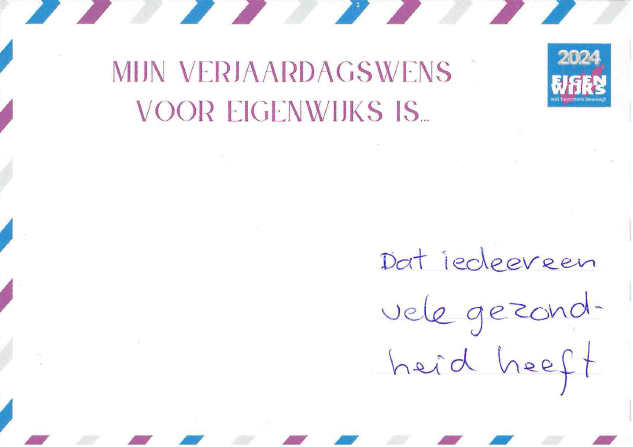 MIJN VERJAARDAGSWENS
VOOR EIGENWIJKS IS...
2024
EIGEN
WIJKS
wat bewoners beweegt
Dat iedeereen
vele gezond-
heid heeft